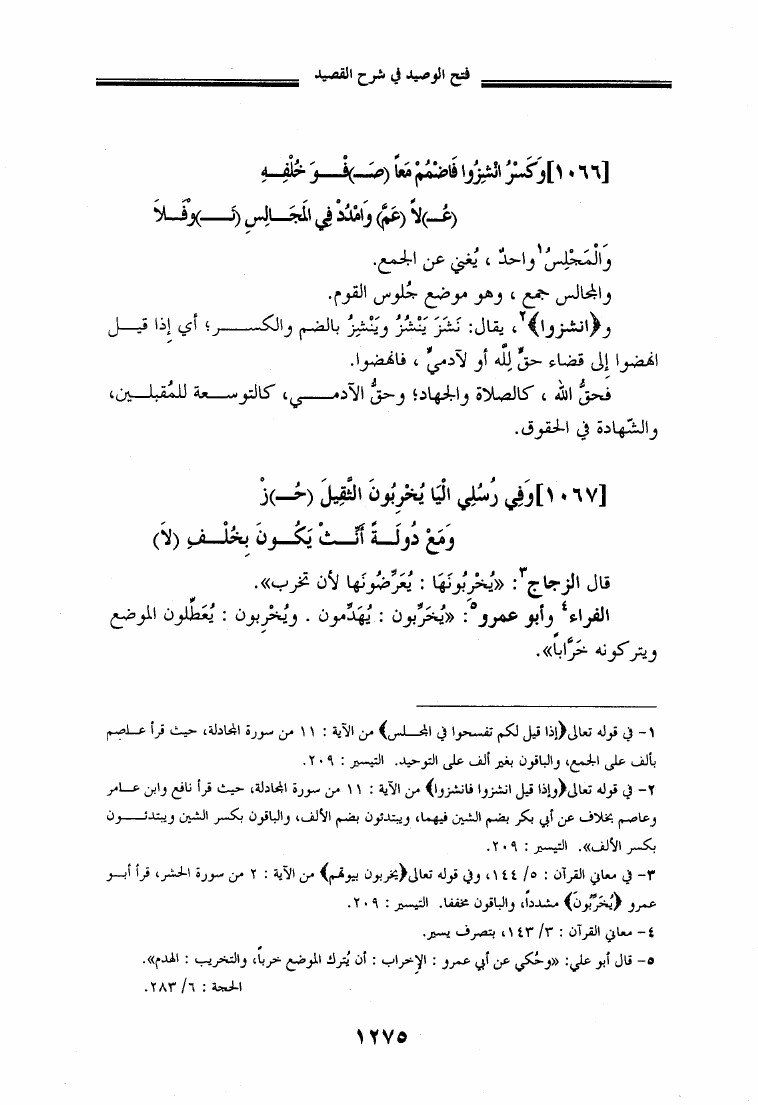 فتح الوصيد في شرح القصيد
[١٠٦٦]وَكَسْرُ انْشِزُوا فَاضْمُمْ مَعاً (صَـ)فْـوَ خُلْفِـهِ
(عُـ)لاً (عَمَّ) وَامْدُدْ فِي الَمَجَـالِسِ (نَـ)وْفَـلاَ
وَالْمَجْلِسُ١ واحدٌ ، يُغني عن الجمع.
والمجالس جمع ، وهو موضع جُلوس القوم.
و﴿انشزوا﴾٢، يقال: نَشَزَ يَنْشُزُ ويَنْشِزُ بالضم والكسر؛ أي إذا قيل
انهضوا إلى قضاء حقٍّ لِلَّه أو لآدميٍّ ، فانهضوا.
فحقُّ الله ، كالصلاة والجهاد؛ وحقُّ الآدمي، كالتوسعة للمُقبلين،
والشّهادة في الحقوق.
[١٠٦٧]وَفِي رُسُلِي الْيَا يُخْرِبُونَ الثَّقِيلَ (حُـ)زْ
وَمَعْ دُولَـةً أَنِّـثْ يَكُـونَ بِخُلْـفِ (لاَ)
قال الزجاج٣: «يُخْرِبُونَهَا : يُعَرِّضُونَها لأن تخرب».
الفراء٤ وأبو عمرو٥: «يُخَرِّبون : يُهَدِّمون . ويُخْرِبون : يُعَطِّلون الموضع
ويتركونه خَرَّاباً».
١- في قوله تعالى﴿إذا قيل لكم تفسحوا في المجلس﴾ من الآية : ١١ من سورة المجادلة، حيث قرأ عاصم
بألف على الجمع، والباقون بغير ألف على التوحيد. التيسير : ٢٠٩.
٢- في قوله تعالى﴿وإذا قيل انشزوا فانشزوا﴾ من الآية : ١١ من سورة المجادلة، حيث قرأ نافع وابن عامر
وعاصم بخلاف عن أبي بكر بضم الشين فيهما، ويبتدئون بضم الألف، والباقون بكسر الشين ويبتدئون
بكسر الألف». التيسير : ٢٠٩.
٣- في معاني القرآن : ٥/ ١٤٤، وفي قوله تعالى﴿يخربون بيوتهم﴾ من الآية : ٢ من سورة الحشر، قرأ أبو
عمرو ﴿يُخَرِّبُونَ﴾ مشدداً، والباقون مخففا. التيسير : ٢٠٩.
٤- معاني القرآن : ٣/ ١٤٣، بتصرف يسير.
٥- قال أبو علي: «وحُكي عن أبي عمرو : الإخراب : أن يُترك الموضع خرباً، والتخريب : الهدم».
الحجة : ٦/ ٢٨٣.
١٢٧٥